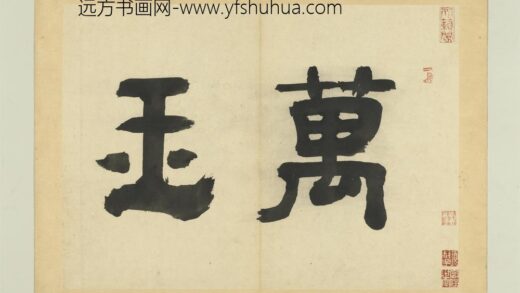 远方书画网-www.yfshuhua.com
萬玉